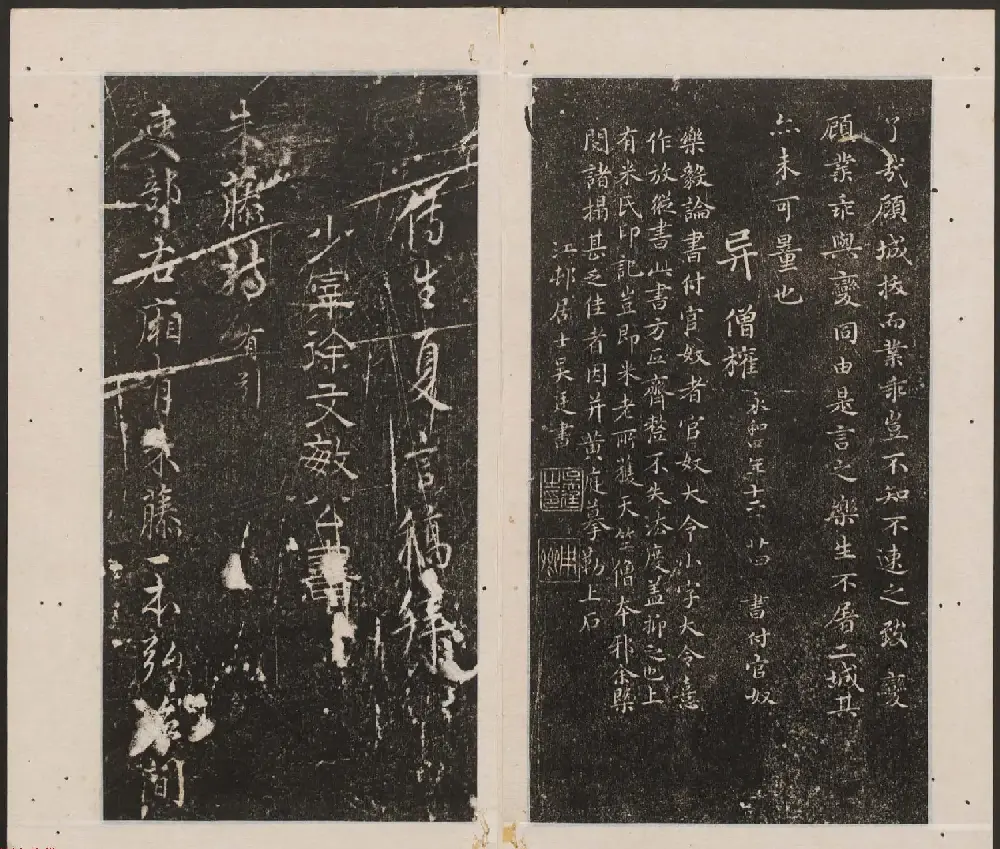 了哉顧城拔而業乖豈不知不速之致變
顧業乖與變同由是言之樂生不屠二城其
亦未可量也
异僧權
永和四年十二月廿四日書付官奴
樂毅論書付官奴者官奴大令小字大令意
作放縱書此書方正齊整不失法度蓋抑之也上
有米氏印記豈即米老所獲天竺僧本邪余閱
諸搨甚乏佳者因并黃庭摹勒上石
江邨居士吳廷書
舊生夏言稿
少宰徐文敏公書
朱藤詩有引
吏部右廂有朱藤一本弘治間